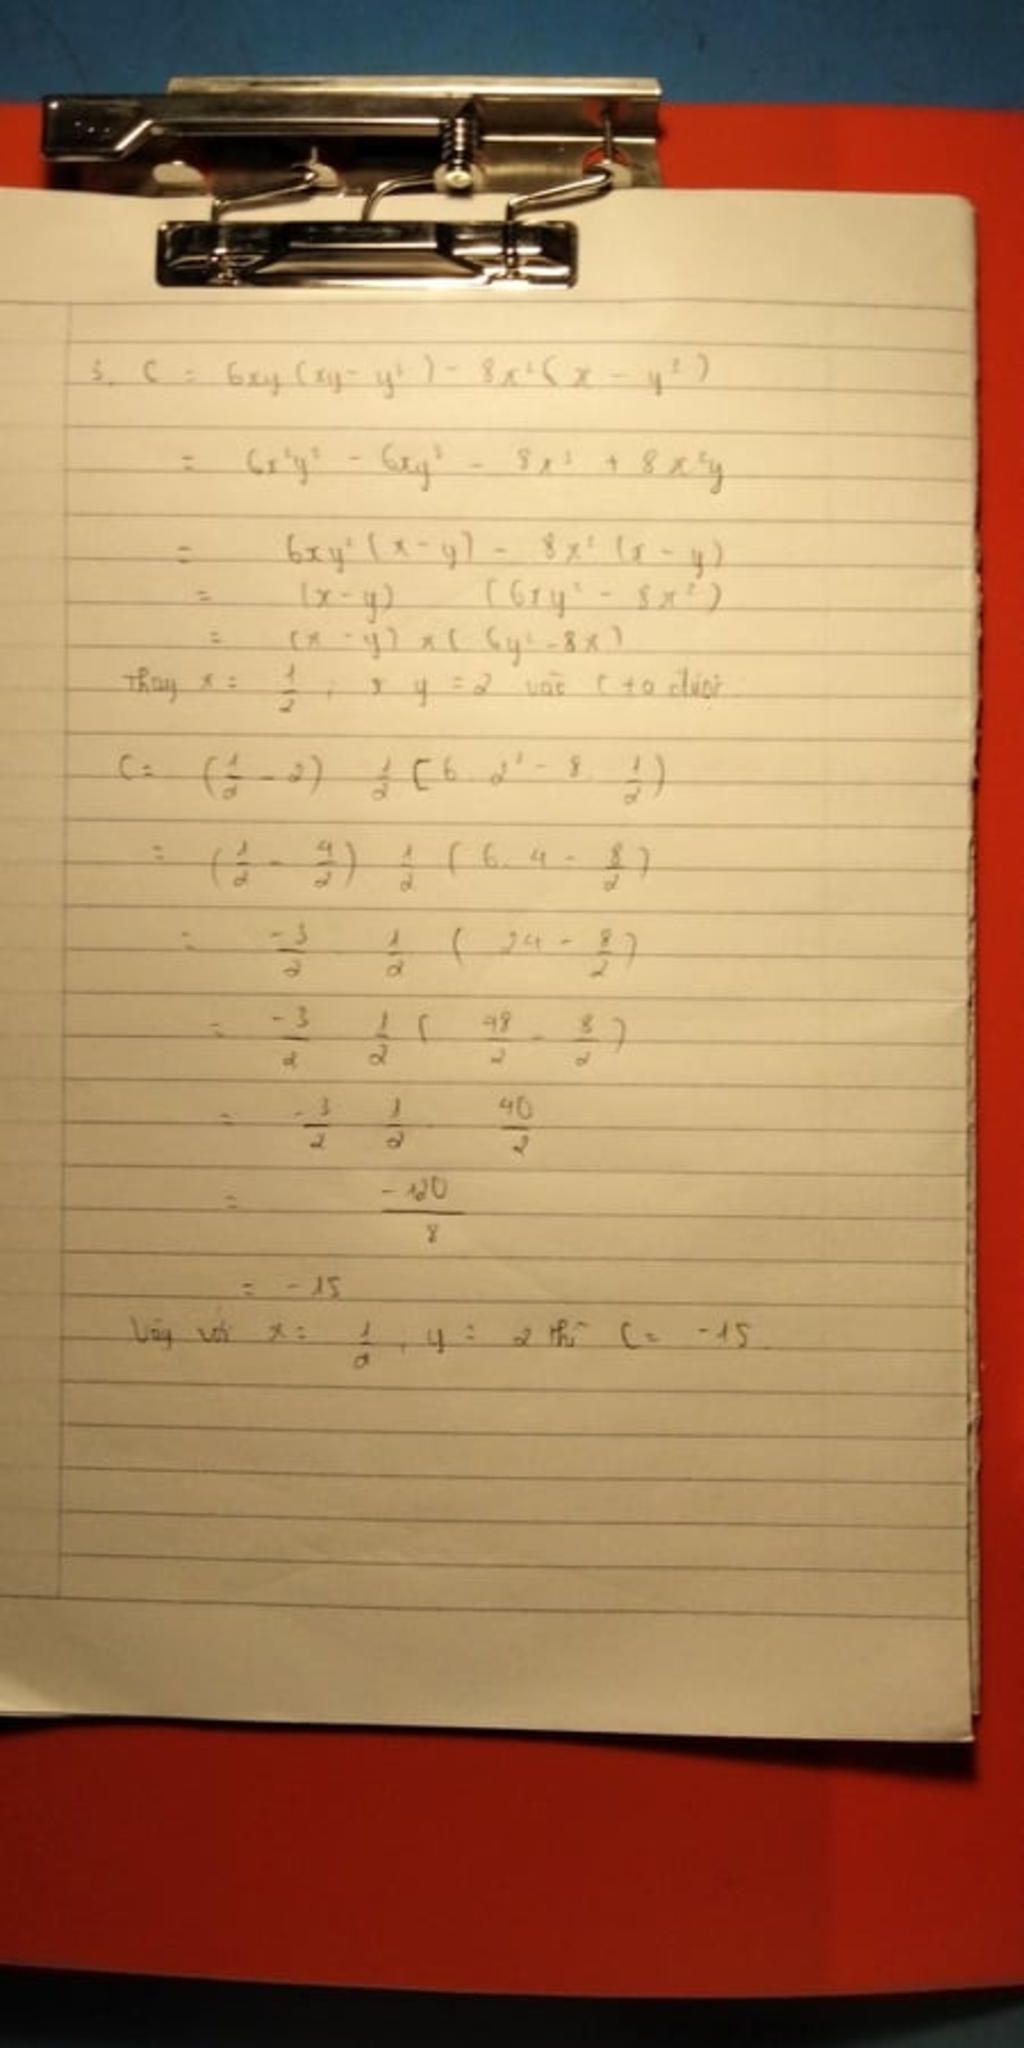 3. C = 6xy(xy - y²) - 8x²(x - y²)
= 6x²y² - 6xy³ - 8x³ + 8x²y
= 6xy²(x - y) - 8x²(x - y)
= (x - y) (6xy² - 8x²)
= (x - y) x (6y² - 8x)
Thay x = 1/2 ; y = 2 vào C ta được
C = (1/2 - 2) 1/2 (6 . 2² - 8 . 1/2)
= (1/2 - 4/2) 1/2 (6 . 4 - 8/2)
= -3/2 1/2 (24 - 8/2)
= -3/2 1/2 (48/2 - 8/2)
= -3/2 1/2 . 40/2
= -120/8
= -15
Vậy với x = 1/2 , y = 2 thì C = -15.